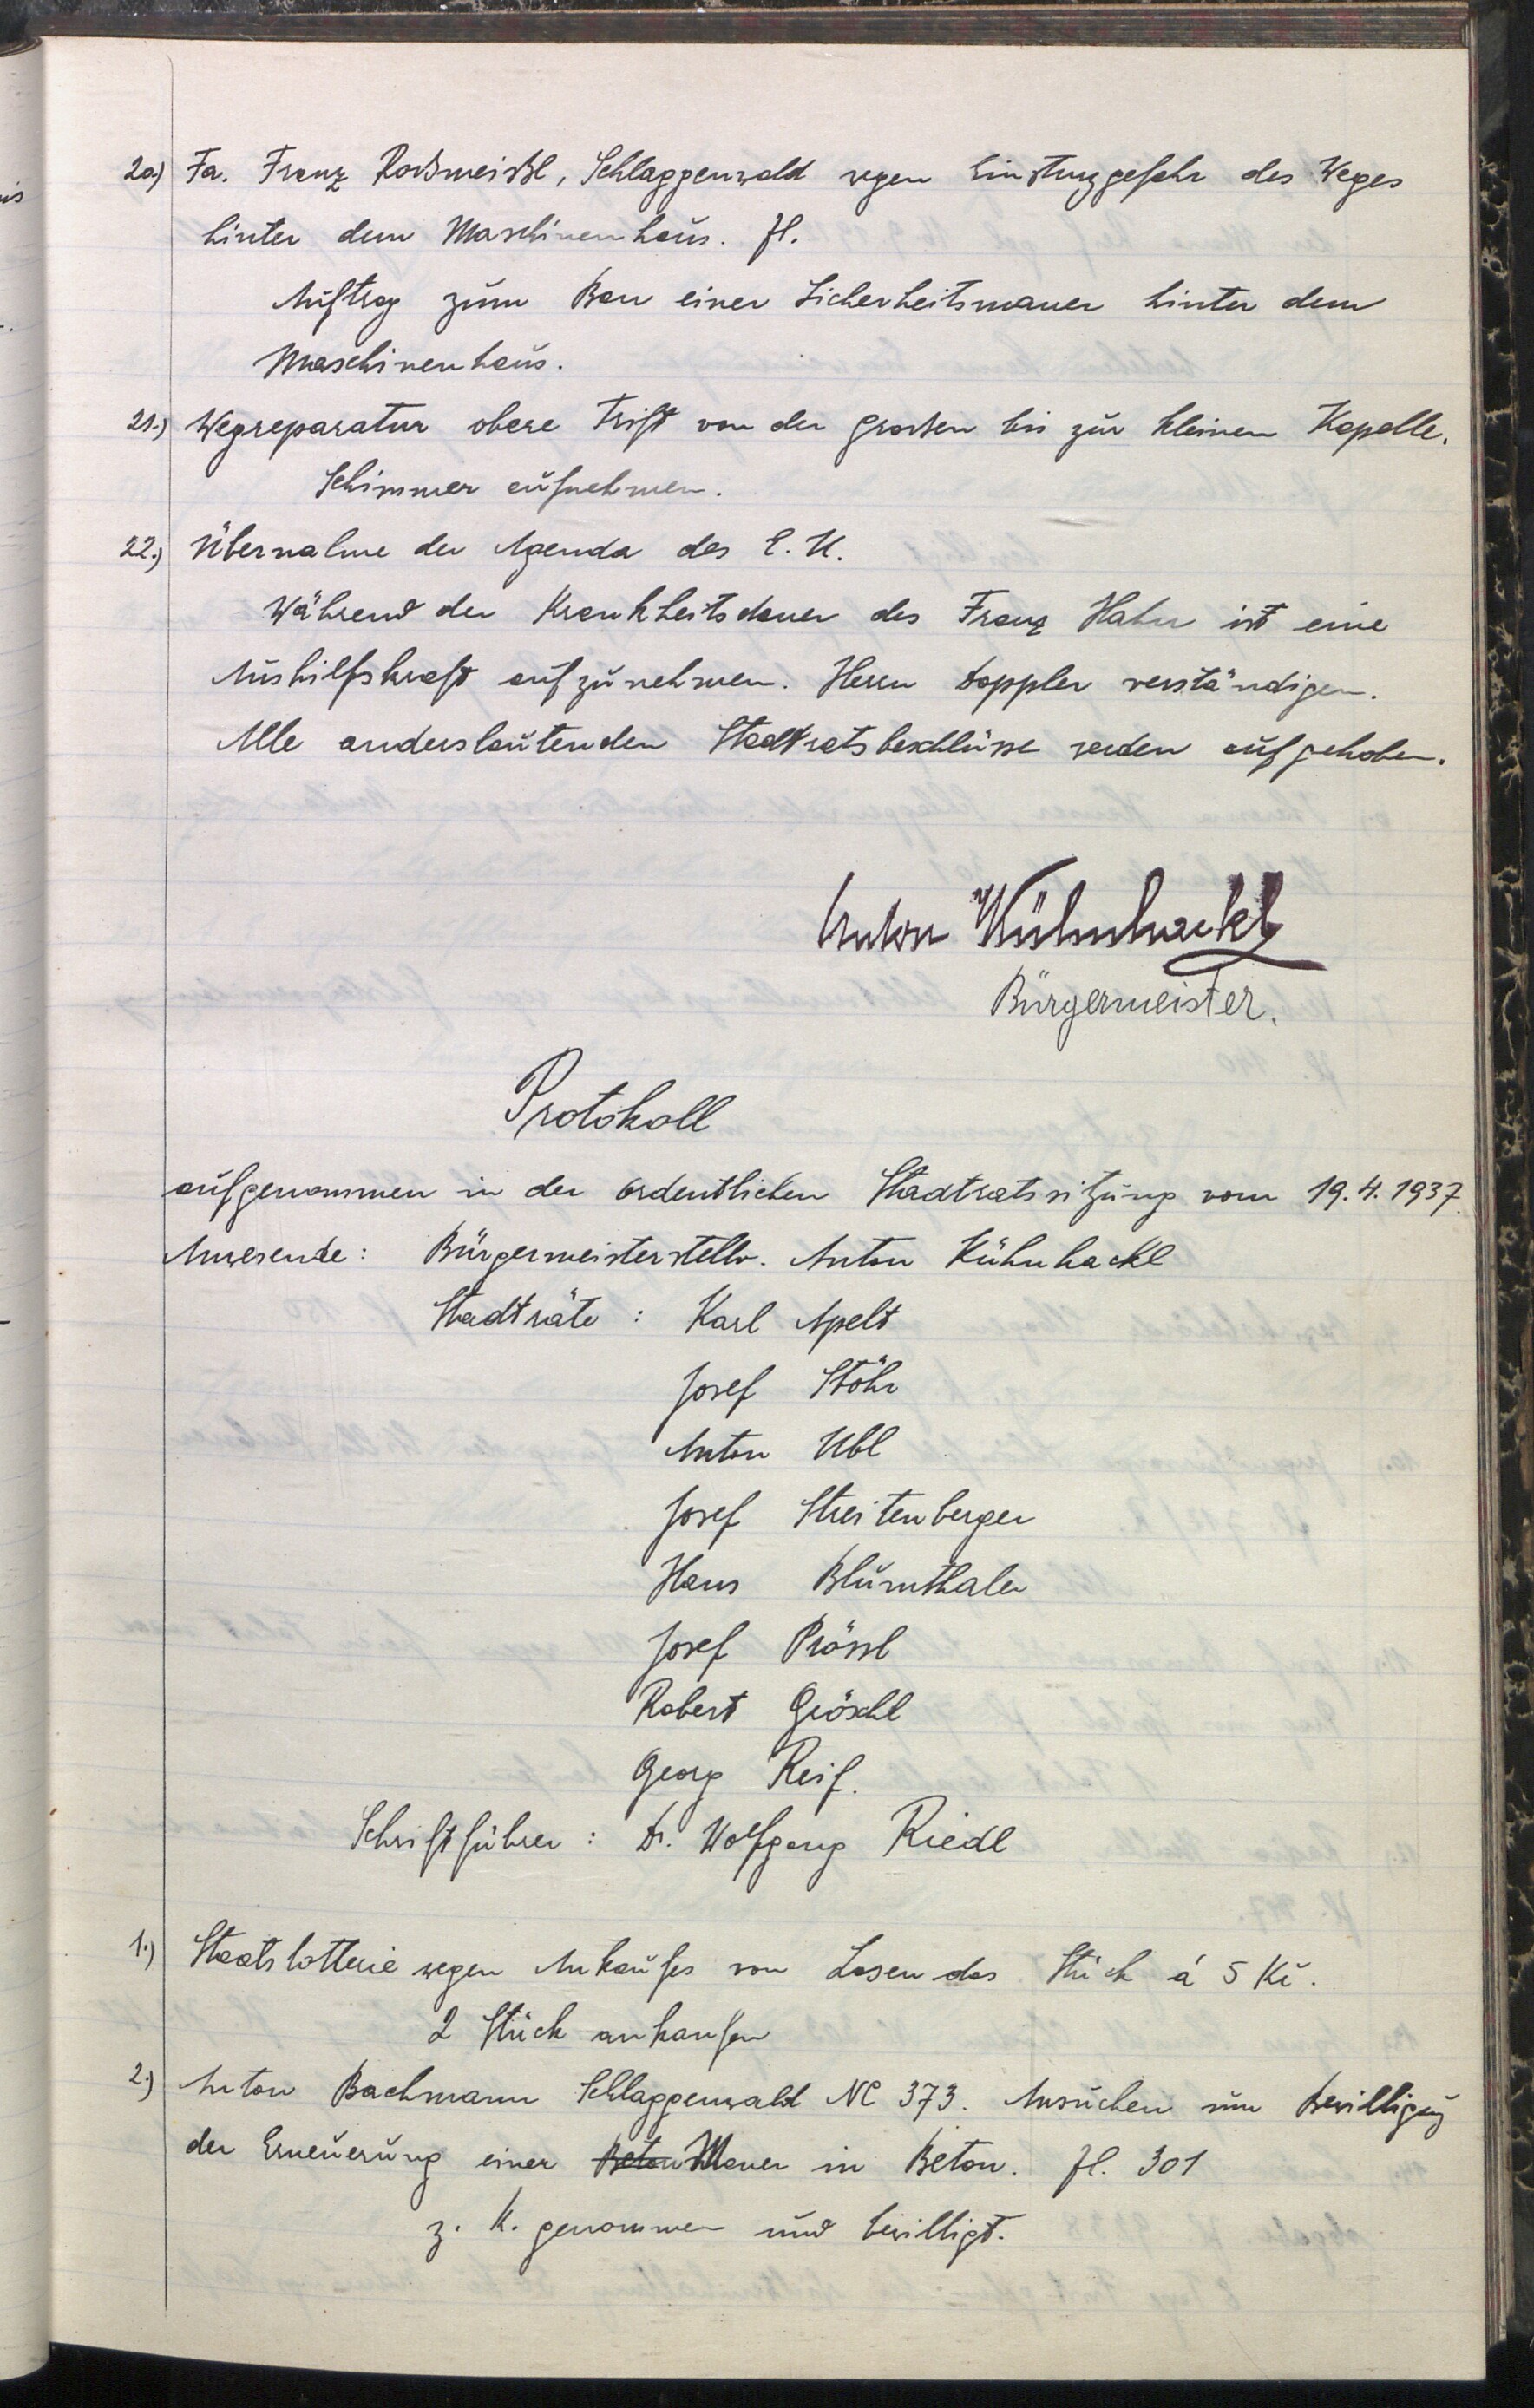 20.) Fa. Franz Roßmeißl, Schlaggenwald wegen Einsturzgefahr des Weges
hinter dem Maschinenhaus. Zl.
Auftrag zum Bau einer Sicherheitsmauer hinter dem
Maschinenhaus.
21.) Wegreparatur obere Trift von der grossen bis zur kleinen Kapelle.
Schimmer aufnehmen.
22.) Übernahme der Agenda des E. U.
Während der Krankheitsdauer des Franz Hahn ist eine
Aushilfskraft aufzunehmen. Herrn Doppler verständigen.
Alle anderslautenden Stadtratsbeschlüsse werden aufgehoben.
Anton Kühnhackl
Bürgermeister.
Protokoll
aufgenommen in der ordentlichen Stadtratssitzung vom 19.4.1937.
Anwesende: Bürgermeisterstellv. Anton Kühnhackl
Stadträte: Karl Apelt
Josef Stöhr
Anton Ubl
Josef Streitenberger
Hans Blumthaler
Josef Prössl
Robert Gröschl
Georg Reif.
Schriftführer: Dr. Wolfgang Riedl
1.) Staatslotterie wegen Ankaufes von Losen das Stück á 5 Kč.
2 Stück ankaufen
2.) Anton Bachmann Schlaggenwald NC 373. Ansuchen um Bewilligung
der Erneuerung einer Beton Mauer in Beton. Zl. 301
z. K. genommen und bewilligt.